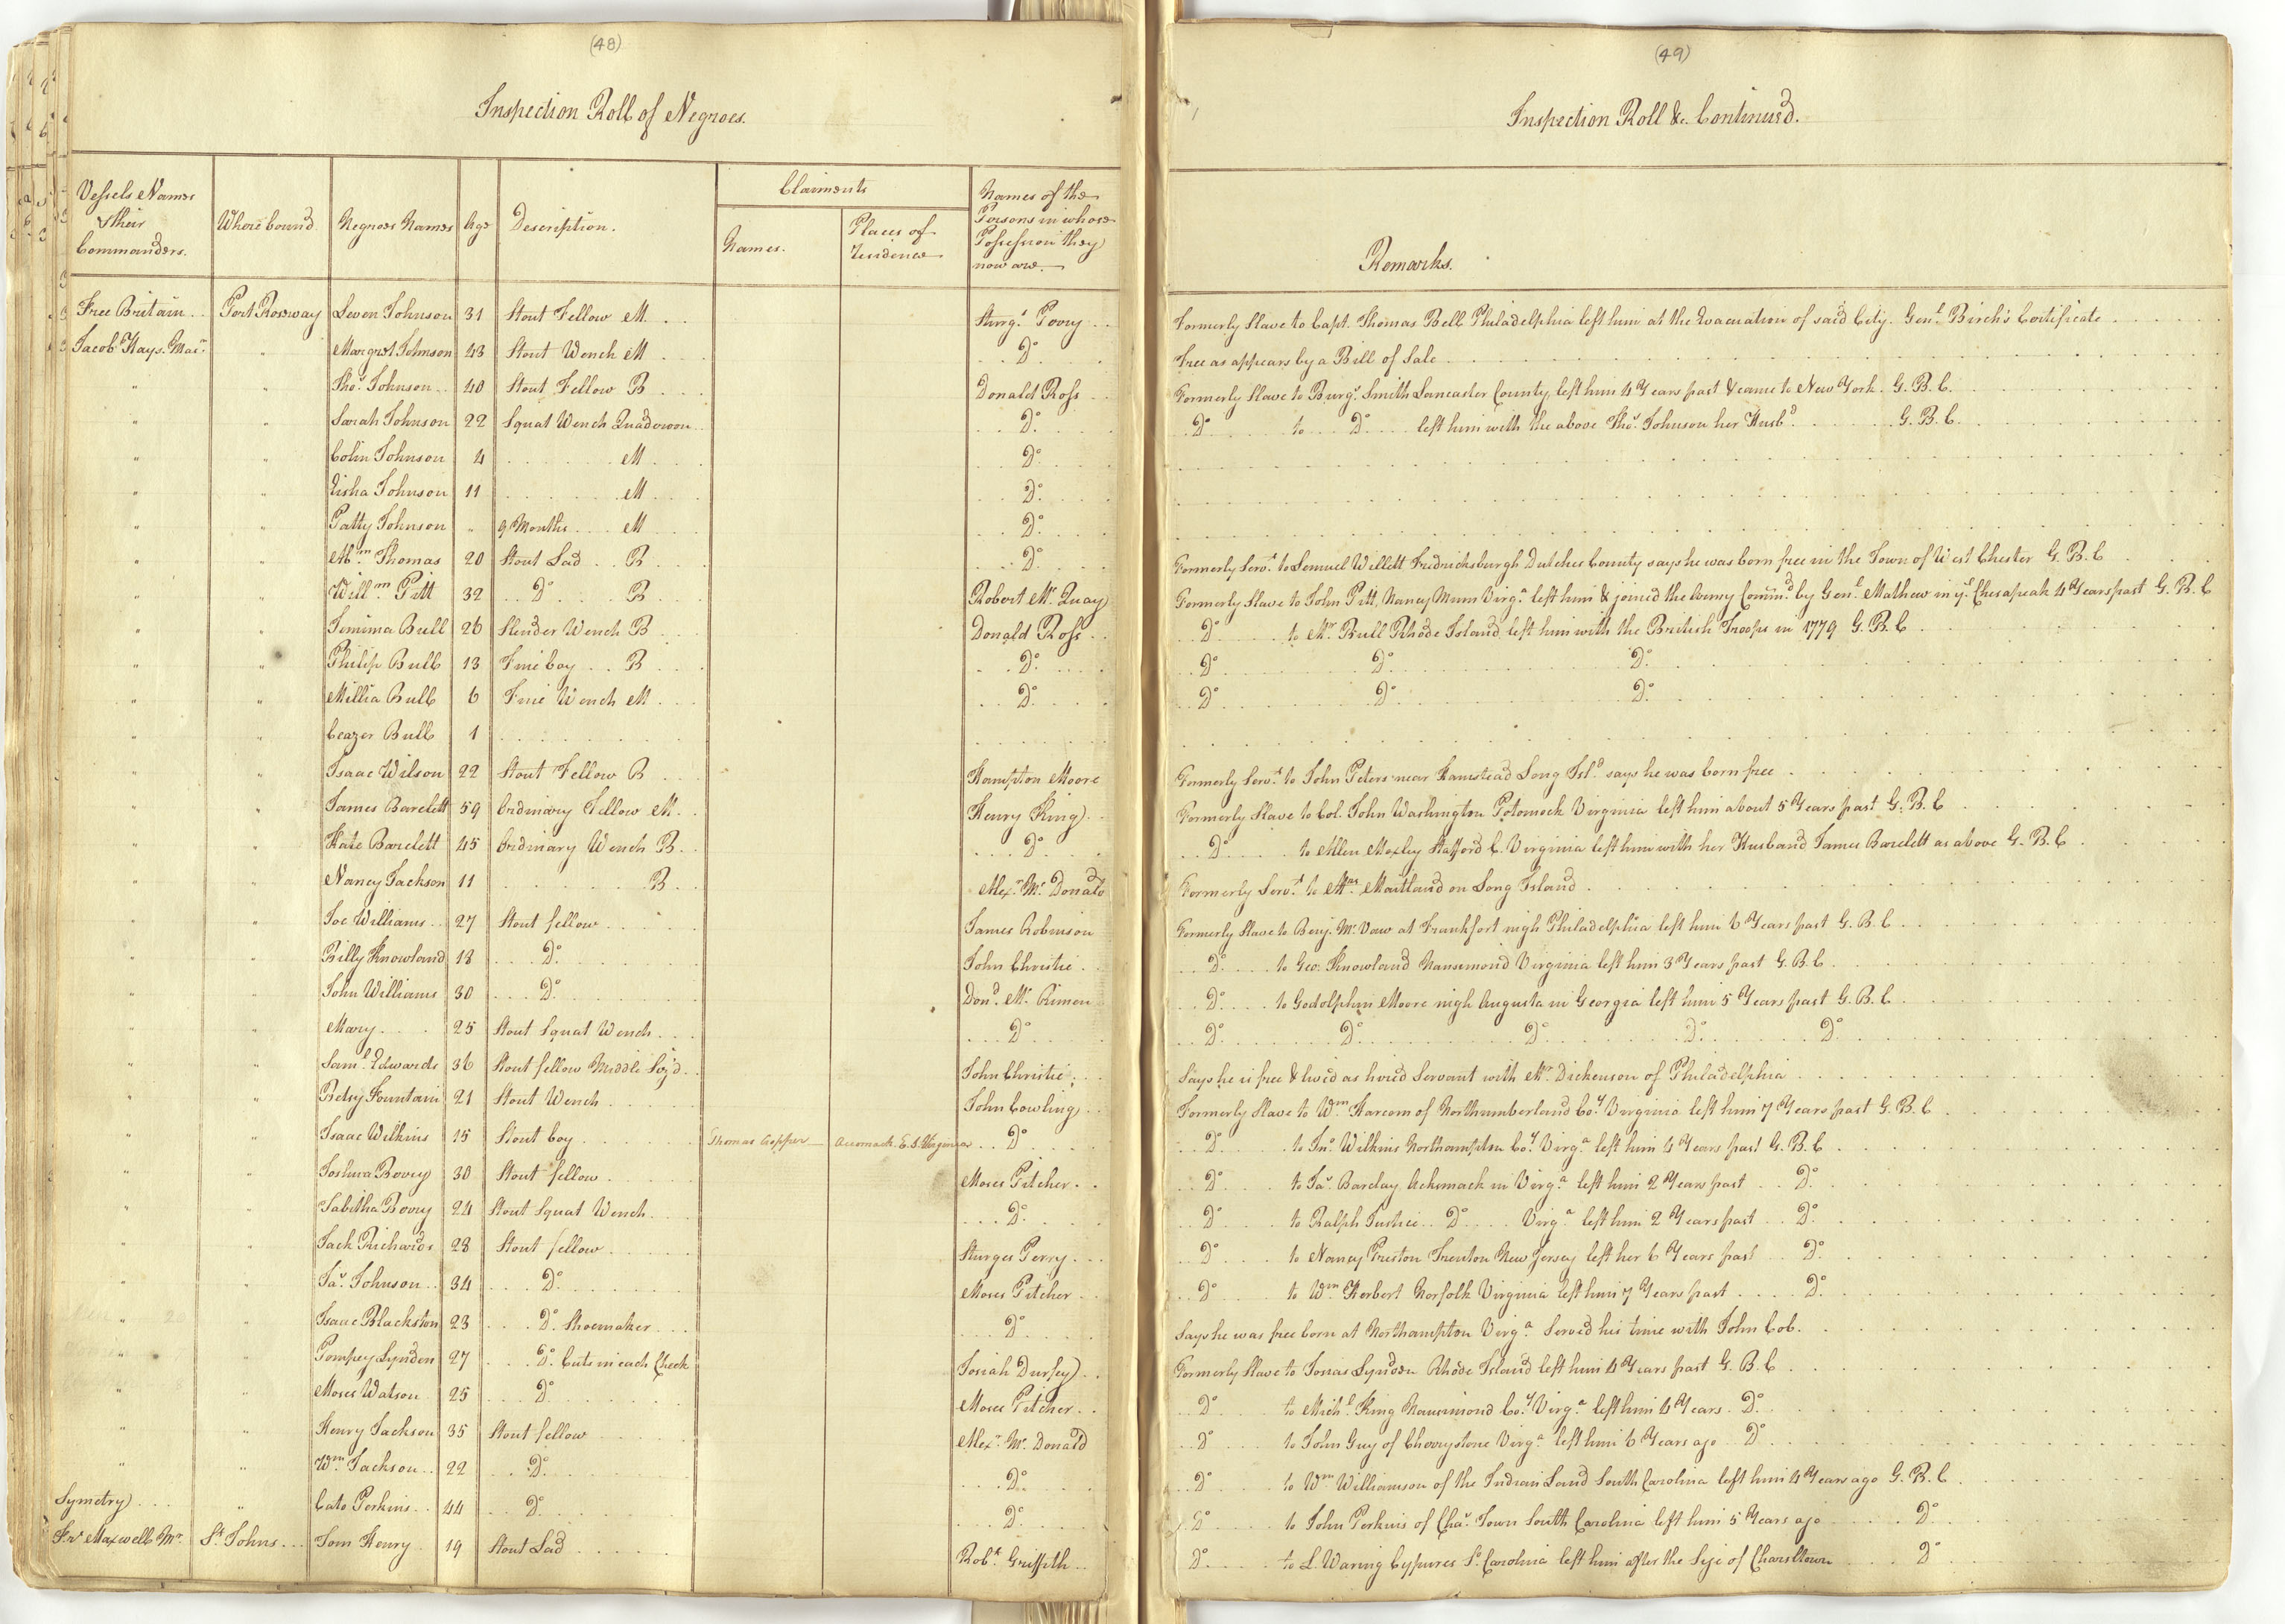 (48)
Inspection Roll of Negroes.
Vessels Names & their Commanders. Where bound. Negroes Names Age Description. Claiments Names. Places of Residence Names of the Persons in whose Possession they now are.
Free Britain Port Roseway Seven Johnson 31 Stout Fellow M. Sturgs. Perry
Jacob Hays. Mar. " Margret Johnson 43 Stout Wench M Do.
" " Thos. Johnson 40 Stout Fellow B Donald Ross
" " Sarah Johnson 22 Squat Wench Quaderoon Do.
" " Colin Johnson 4 M Do.
" " Eisha Johnson 11 M Do.
" " Patty Johnson " 9 Months M Do.
" " Abm. Thomas 20 Stout Lad B Do.
" " Willm. Pitt 32 Do. B Robert Mc. Quay
" " Jemima Bull 26 Slender Wench B Donald Ross
" " Philip Bull 13 Fine boy B Do.
" " Millia Bull 6 Fine Wench M Do.
" " Ceazer Bull 1
" " Isaac Wilson 22 Stout Fellow B Hampton Moore
" " James Barclett 59 Ordinary Fellow M Henry King
" " Kate Barclett 45 Ordinary Wench B Do.
" " Nancy Jackson 11 B Alexr. Mc. Donald
" " Joe Williams 27 Stout fellow James Robinson
" " Billy Knowland 18 Do. John Christie
" " John Williams 30 Do. Dond. Mc. Crimon
" " Mary 25 Stout Squat Wench Do.
" " Saml. Edwards 36 Stout fellow Middle Siz'd John Christie
" " Betsy Fountain 21 Stout Wench John Cowling
" " Isaac Wilkins 15 Stout boy Thomas Copper Accomack E.S. Virginia Do.
" " Joshua Bovey 30 Stout fellow Moses Pitcher
" " Tabitha Bovey 24 Stout Squat Wench Do.
" " Jack Richards 28 Stout fellow Sturges Perry
" " Jas. Johnson 34 Do. Moses Pitcher
" " Isaac Blackston 23 Do. Shoemaker Do.
" " Pompey Lynden 27 Do. Cuts in each Cheek Josiah Dursey
" " Moses Watson 25 Do. Moses Pitcher
" " Henry Jackson 35 Stout fellow Alexr. Mc. Donald
" " Wm. Jackson 22 Do. Do.
Symetry " Cato Perkins 44 Do. Do.
Frs. Maxwell Mr. St. Johns Tom Henry 19 Stout Lad Robt. Griffith
(49)
Inspection Roll &c. Continued.
Remarks.
Formerly Slave to Capt. Thomas Bell Philadelphia left him at the Evacuation of said City. Genl. Birch's Certificate
Free as appears by a Bill of Sale
Formerly Slave to Burgs. Smith Lancaster County, left him 4 Years past & came to New York. G. B. C.
Do. to Do. left him with the above Thos. Johnson her Husbd. G. B. C.
Formerly Servt. to Lemuel Willett Fredricksburgh Dutches County says he was born free in the Town of West Chester G. B. C
Formerly Slave to John Pitt, Nancy Mum Virga. left him & joined the Army Commd. by Genl. Mathew in ye. Chesapeak 4 Years past G. B. C
Do. to Mr. Bull Rhode Island, left him with the British Troops in 1779 G. B. C
Do. Do. Do.
Do. Do. Do.
Formerly Servt. to John Peters near Hamstead Long Isld. says he was born free
Formerly Slave to Col. John Washington Potomock Virginia left him about 5 Years past G. B. C
Do. to Allen Moxley Stafford C. Virginia left him with her Husband James Barclett as above G. B. C
Formerly Servt. to Mrs. Maitland on Long Island
Formerly Slave to Benj. Mc. Vaw at Frankfort nigh Philadelphia left him 6 Years past G. B. C
Do. to Geo. Knowland Nansemond Virginia left him 3 Years past G. B. C
Do. to Godolphin Moore nigh Augusta in Georgia left him 5 Years past G. B. C
Do. Do. Do. Do. Do.
Says he is free & lived as hired Servant with Mr. Dickenson of Philadelphia
Formerly Slave to Wm. Harcom of Northumberland Coy. Virginia left him 7 Years past G. B. C
Do. to Jno. Wilkins Northampton Coy. Virga. left him 4 Years past G. B. C
Do. to Jas. Barclay Ackomack in Virga. left him 2 Years past Do.
Do. to Ralph Justice Do. Virga. left him 2 Years past Do.
Do. to Nancy Preston Trenton New Jersey left her 6 Years past Do.
Do. to Wm. Herbert Norfolk Virginia left him 7 Years past Do.
Says he was free born at Northampton Virga. Served his time with John Cob.
Formerly Slave to Jonas Lyndon Rhode Island left him 4 Years past G. B. C
Do. to Michl. King Nansimond Coy. Virga. left him 4 Years Do.
Do. to John Guy of Cherrystone Virga. left him 6 Years ago Do
Do. to Wm. Williamson of the Indian Land South Carolina left him 4 Years ago G. B. C
Do. to John Perkins of Chas. Town South Carolina left him 5 Years ago Do.
Do. to L. Waring Cypures So. Carolina left him after the Sije of Charsltown Do